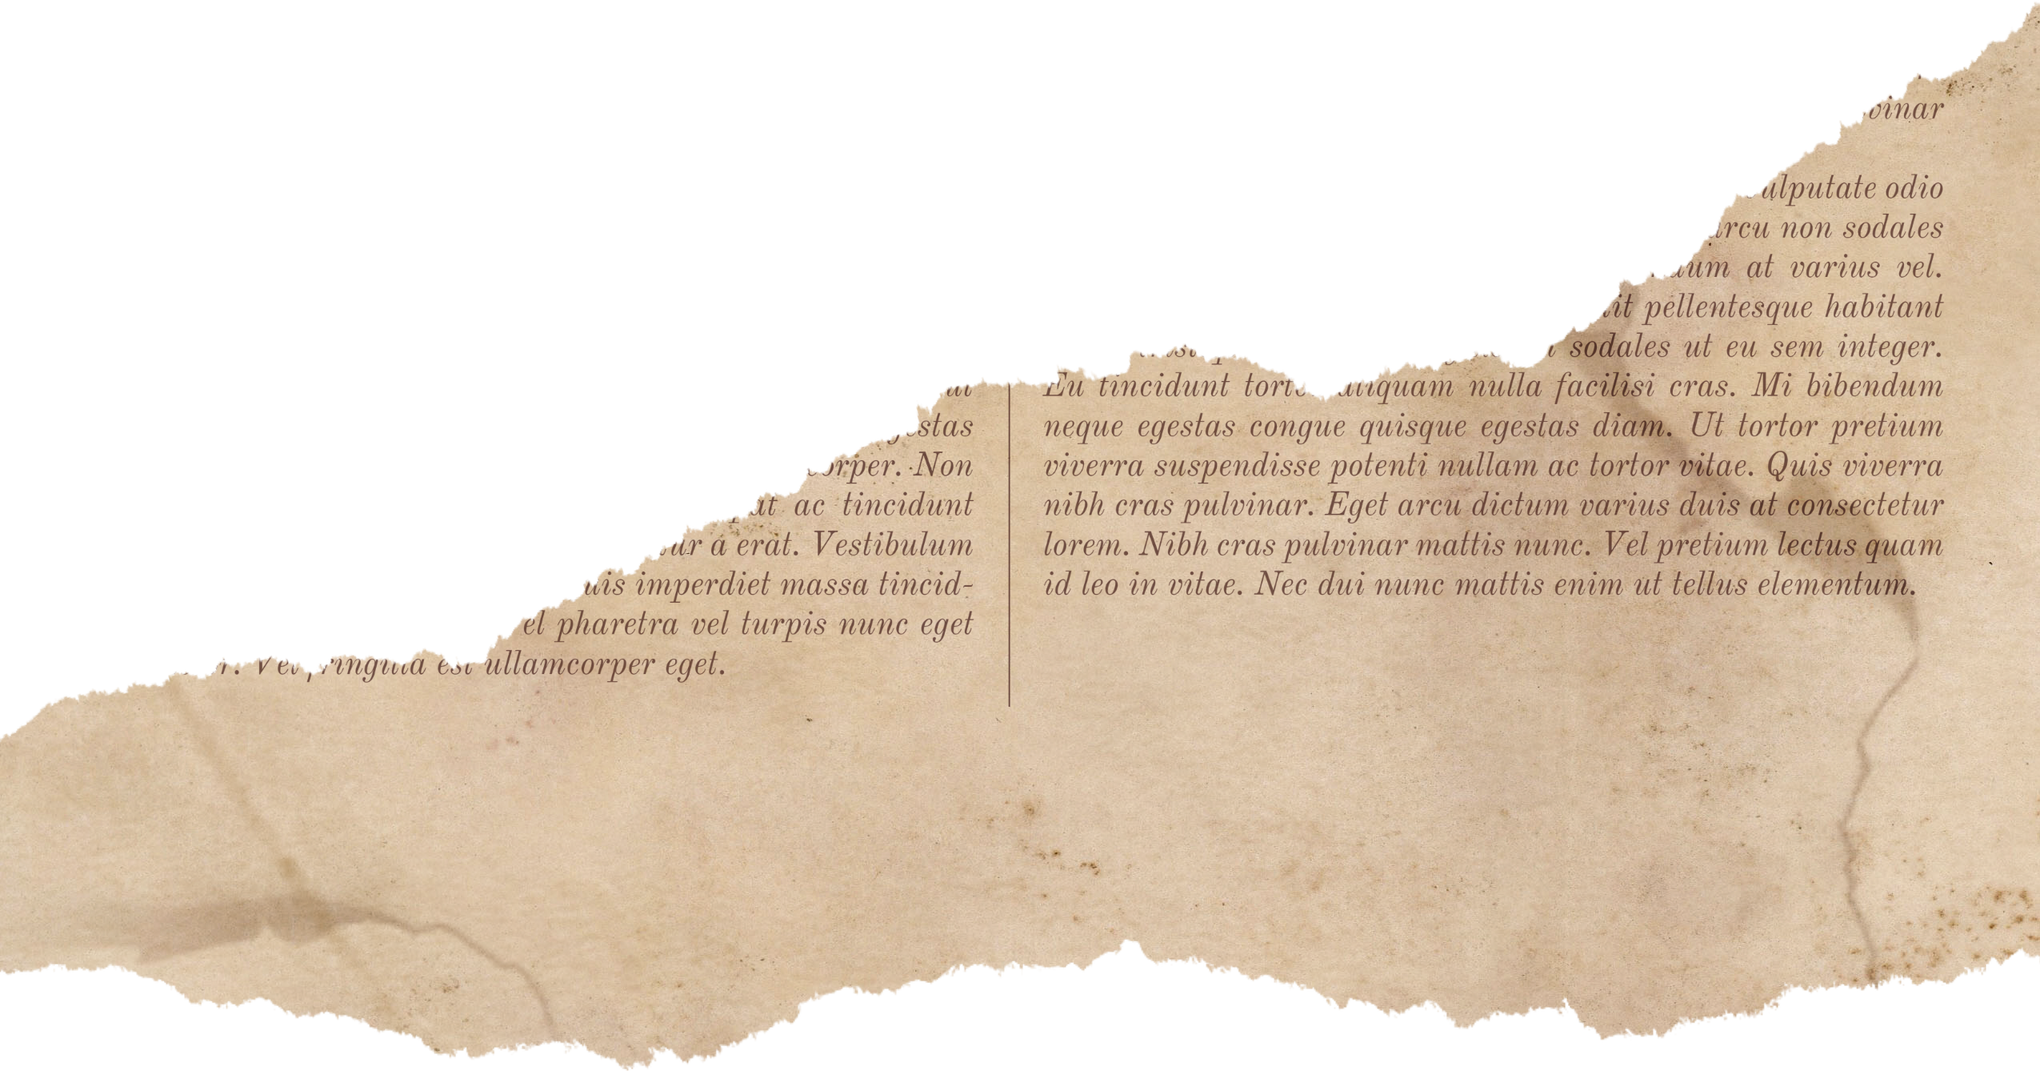 Non
ac tincidunt
a erat. Vestibulum
imperdiet massa tincid-
pharetra vel turpis nunc eget
est ullamcorper eget.
odio
non sodales
at varius vel.
pellentesque habitant
sodales ut eu sem integer.
Eu tincidunt nulla facilisi cras. Mi bibendum
neque egestas congue quisque egestas diam. Ut tortor pretium
viverra suspendisse potenti nullam ac tortor vitae. Quis viverra
nibh cras pulvinar. Eget arcu dictum varius duis at consectetur
lorem. Nibh cras pulvinar mattis nunc. Vel pretium lectus quam
id leo in vitae. Nec dui nunc mattis enim ut tellus elementum.